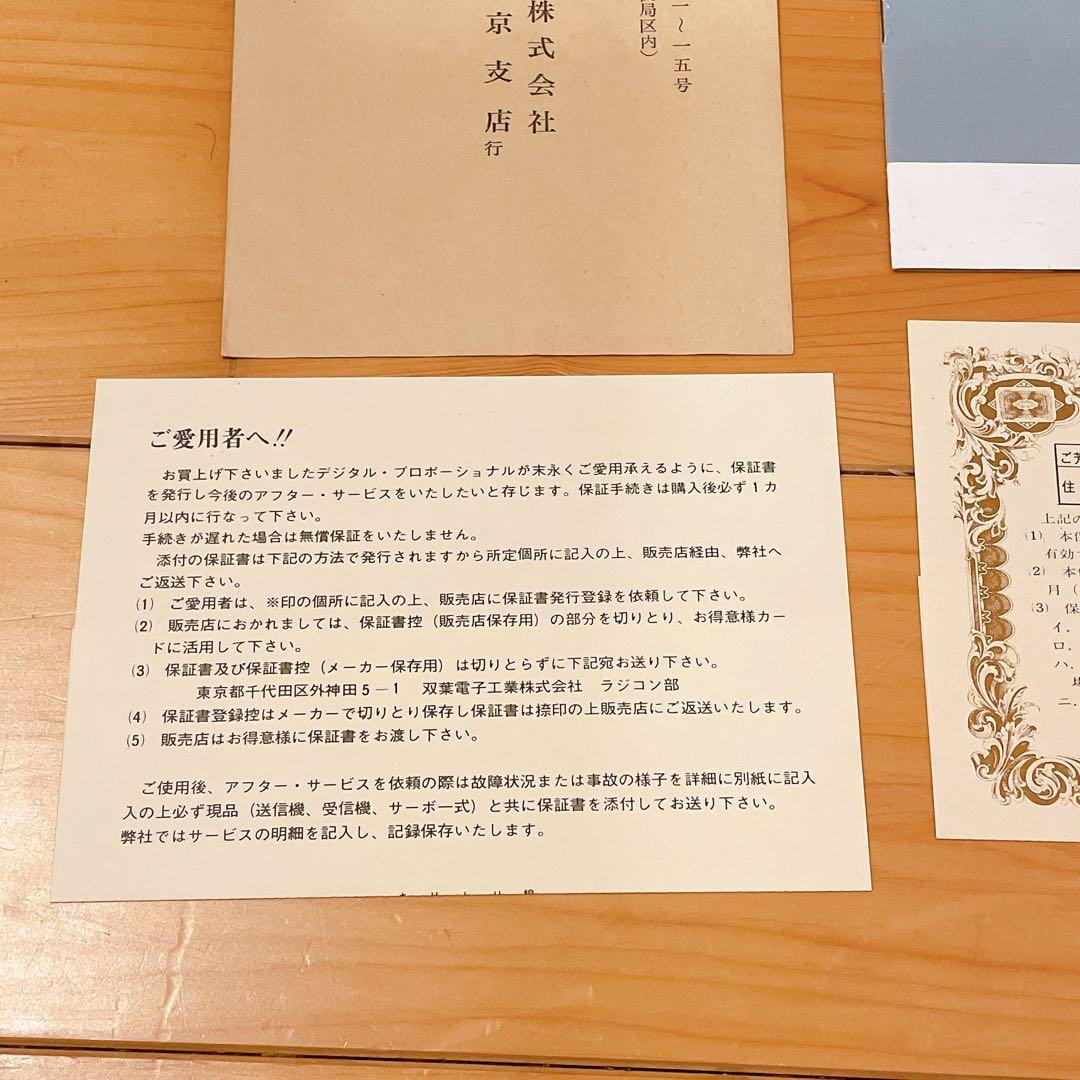 一〜一五号
局区内）
株式会社
京支店行
ご愛用者へ!!
お買上げ下さいましたデジタル・プロポーショナルが末永くご愛用承えるように、保証書
を発行し今後のアフター・サービスをいたしたいと存じます。保証手続きは購入後必ず1カ
月以内に行なって下さい。
手続きが遅れた場合は無償保証をいたしません。
添付の保証書は下記の方法で発行されますから所定個所に記入の上、販売店経由、弊社へ
ご返送下さい。
(1) ご愛用者は、※印の個所に記入の上、販売店に保証書発行登録を依頼して下さい。
(2) 販売店におかれましては、保証書控（販売店保存用）の部分を切りとり、お得意様カー
ドに活用して下さい。
(3) 保証書及び保証書控（メーカー保存用）は切りとらずに下記宛お送り下さい。
東京都千代田区外神田5－1 双葉電子工業株式会社 ラジコン部
(4) 保証書登録控はメーカーで切りとり保存し保証書は捺印の上販売店にご返送いたします。
(5) 販売店はお得意様に保証書をお渡し下さい。
ご使用後、アフター・サービスを依頼の際は故障状況または事故の様子を詳細に別紙に記入
入の上必ず現品（送信機、受信機、サーボ一式）と共に保証書を添付してお送り下さい。
弊社ではサービスの明細を記入し、記録保存いたします。
キリトリ線
ご
住
上記の
(1) 本保
有効
(2) 本
月（
(3) 保
イ．
ロ．
ハ．
場
ニ．